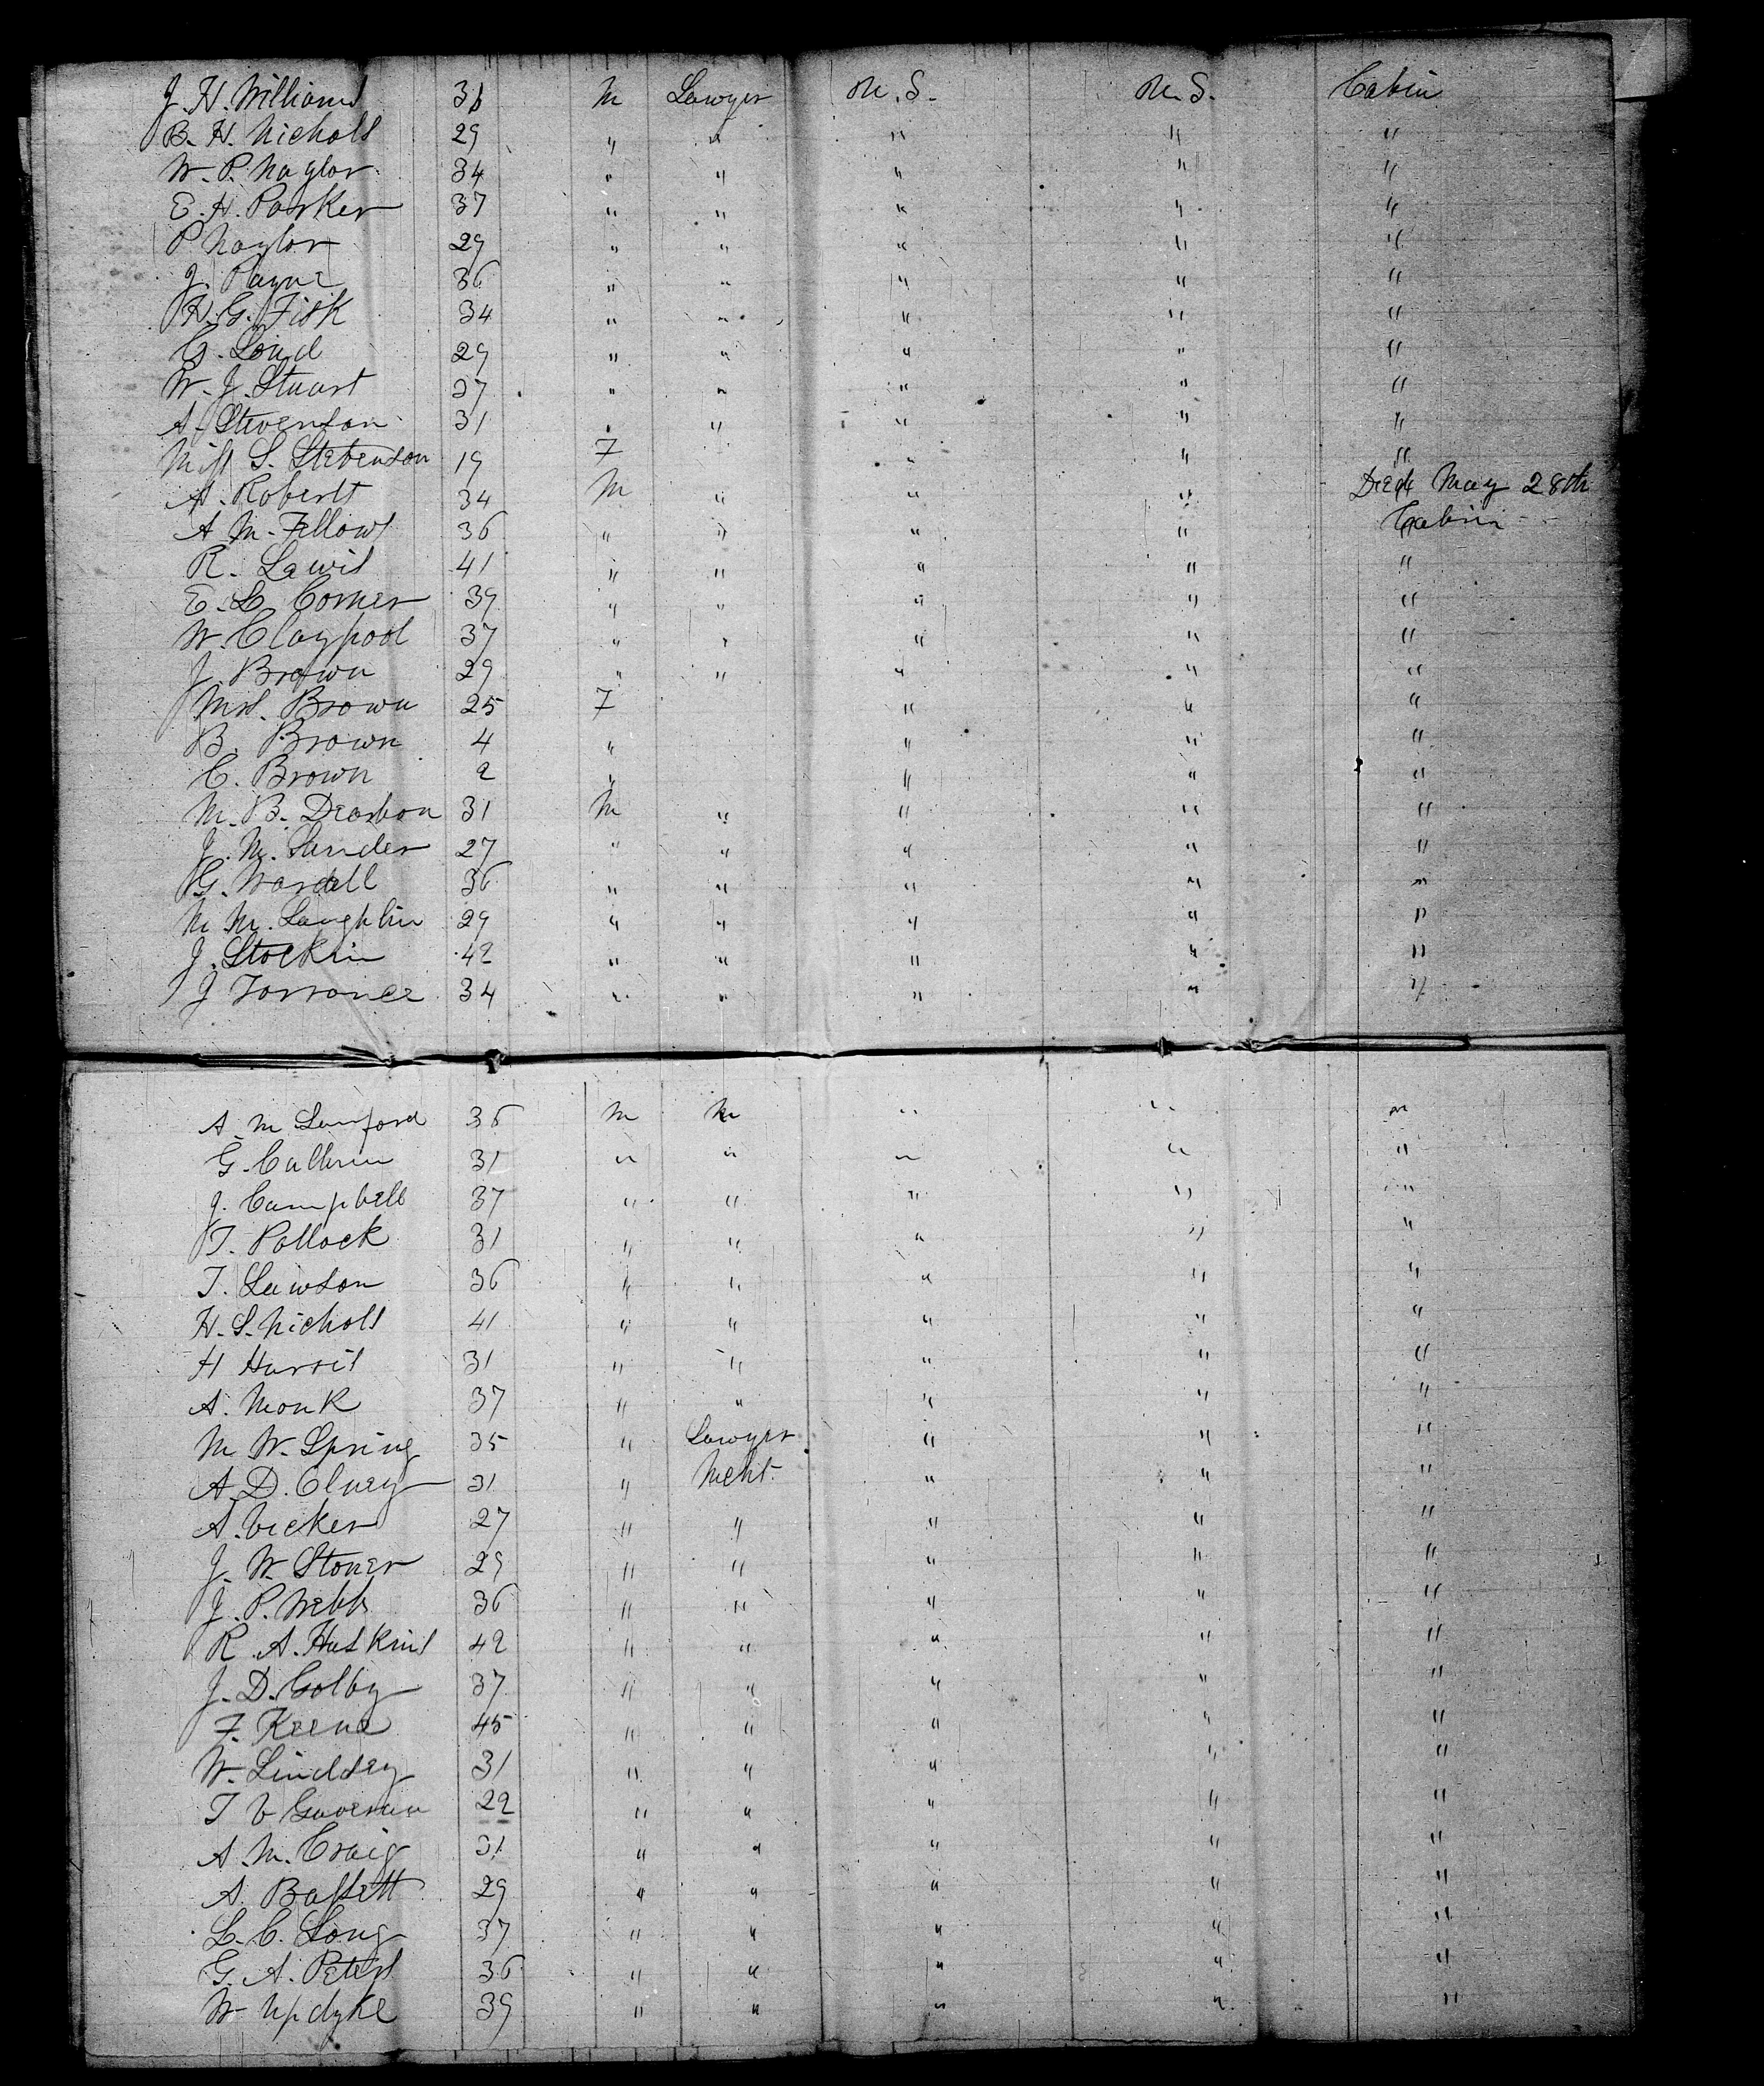 J. H. Williams 36 M Lawyer U.S. U.S. Cabin
B. H. Nichols 29 " " " " "
W. P. Naylor 34 " " " " "
E. H. Parker 37 " " " " "
P Naylor 29 " " " " "
J. Payne 36 " " " " "
H. G. Fisk 34 " " " " "
G. Loud 29 " " " " "
W. J. Stuart 37 " " " " "
A. Stevenson 31 " " " " "
Miss S. Stevenson 19 F " " "
A. Roberts 34 M " " " Died May 28th
A M. Fellows 36 " " " " Cabin
R. Lewis 41 " " " " "
E. L. Comer 39 " " " " "
W. Claypool 37 " " " " "
J. Brown 29 " " " " "
Mrs. Brown 25 F " " "
B. Brown 4 " " " "
C. Brown 2 " " " "
M. B. Dearbon 31 M " " " "
J. M. Sander 27 " " " " "
G. Wardell 36 " " " " "
M M. Laughlin 29 " " " " "
J. Stockin 42 " " " " "
J Torrance 34 " " " " "
A. M 36 M " " " "
G. 31 " " " " "
J. Campbell 37 " " " " "
T. Pollock 31 " " " " "
T. Lawson 36 " " " " "
H. S. Nichols 41 " " " " "
H Harris 31 " " " " "
A. Monk 37 " " " " "
M W. Spring 35 " Lawyer " " "
A. D. Olney 31 " Mcht. " " "
A. Vicker 27 " " " " "
J. W. Stoner 29 " " " " "
J. P. Webb 36 " " " " "
R. A. Huskins 42 " " " " "
J. D. Colby 37 " " " " "
F. Keene 45 " " " " "
W. Lindsey 31 " " " " "
T V 29 " " " " "
A. M. Craig 31 " " " " "
A. Bassett 29 " " " " "
L. C. Long 37 " " " " "
G. A. Peters 36 " " " " "
W Updyke 39 " " " " "